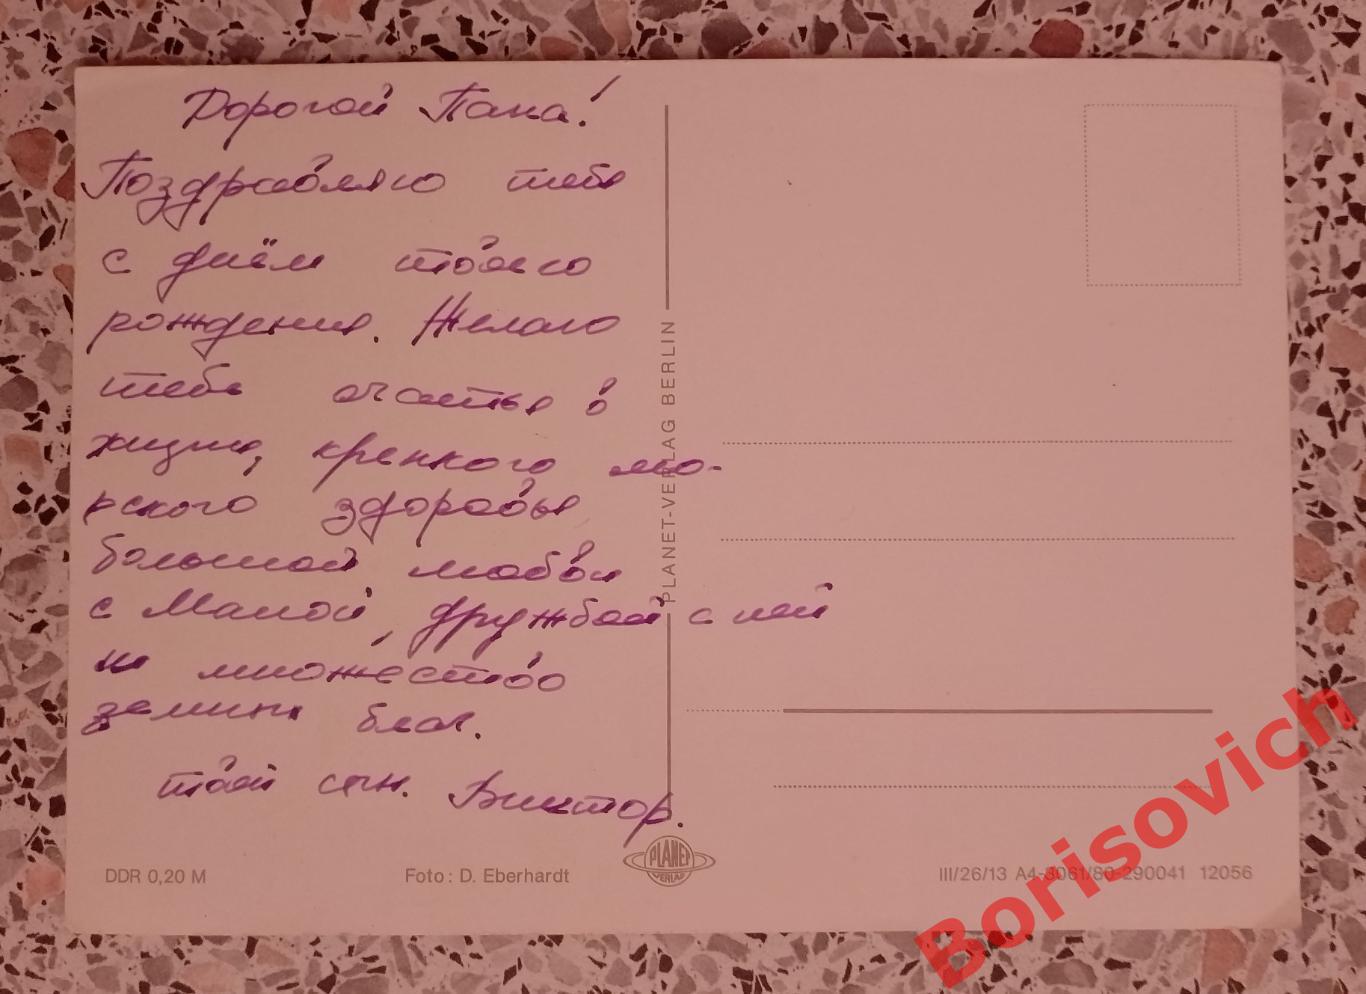 Дорогой Папа!
Поздравляю тебя
с днём твоего
рождения. Желаю
тебе счастья в
жизни, крепкого мо-
рского здоровья
большой любви
с Мамой, дружбой с ней
и множество
земных благ.
твой сын. Виктор.
PLANET-VERLAG BERLIN
DDR 0,20 M
Foto: D. Eberhardt
PLANET
VERLAG
III/26/13 A4-3061/80-290041 12056
Borisovich